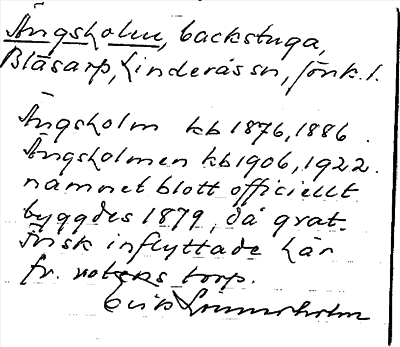 Ängsholm, backstuga,
Blåsarp, Linderås sn, Jönk. l.
Ängsholm kb 1876, 1886.
Ängsholmen kb 1906, 1922.
namnet blott officiellt
byggdes 1879, då grat.
Frisk inflyttade här
fr. rotens torp.
Erik Linnarholm